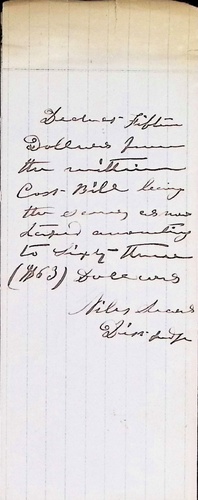 Deduct Fifteen
Dollars from
the within
Cost Bill being
the same as now
taxed amounting
to Sixty three
($63) Dollars
Niles Searls
Dist Judge